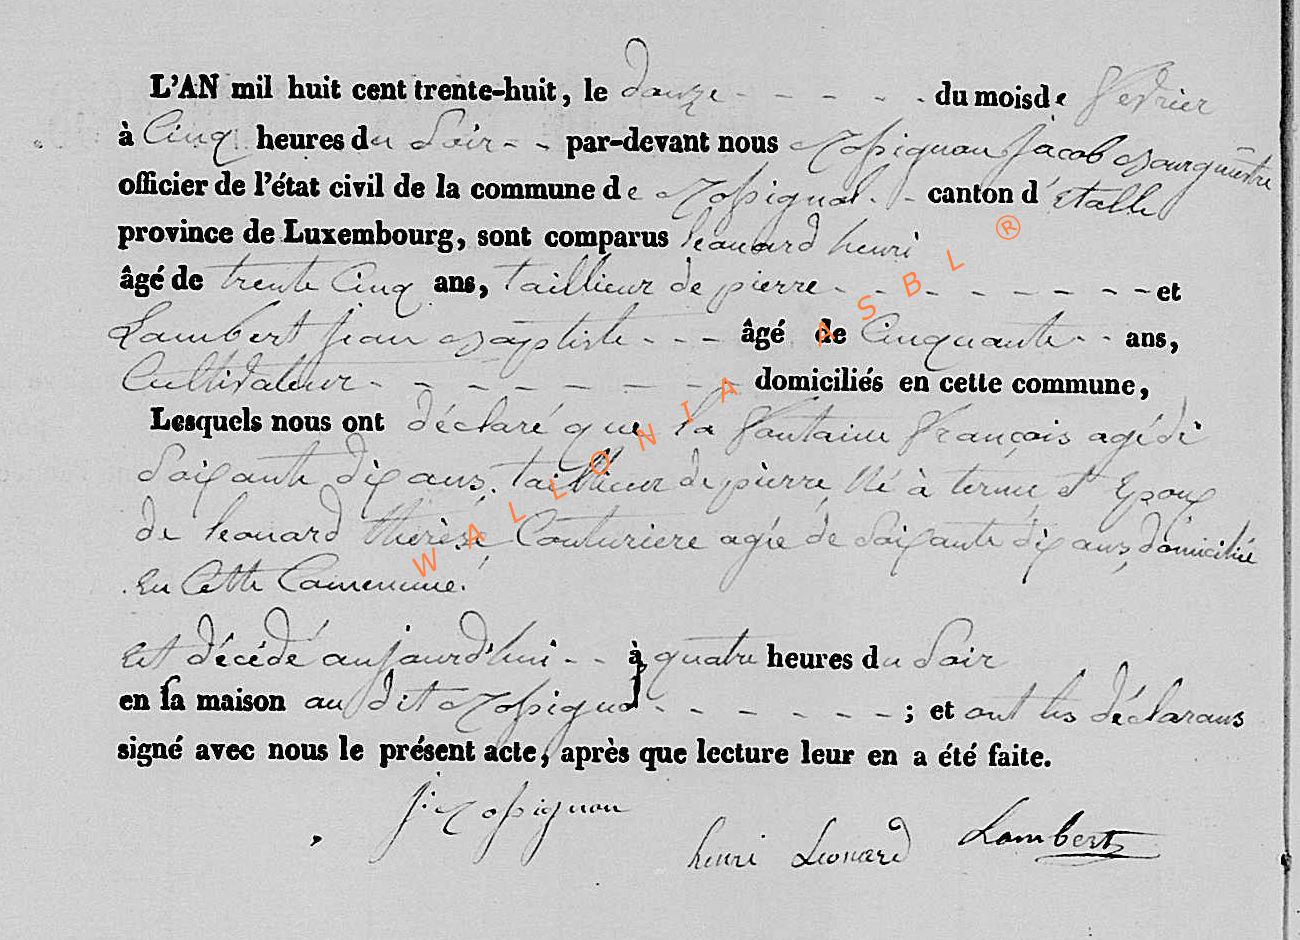 L'AN mil huit cent trente-huit, le douze - - - - - du mois de fevrier
à Cinq heures du Soir - - par-devant nous Rossignon Jacob Bourguemêtre
officier de l'état civil de la commune de Rossignol - - canton d'Etalle
province de Luxembourg, sont comparus Leonard henri
âgé de trente Cinq ans, taillieur de pierre - - - - - - - - et
Lambert jean Baptiste - - - âgé de Cinquante - - ans,
Cultivateur - - - - - - - - domiciliés en cette commune,
Lesquels nous ont déclaré que la fontaine françois agé de
Soixante dix ans, taillieur de pierre, Né à termes et Epoux
de Leonard thérèse, Couturiere agée de Soixante dix ans, domiciliée
en Cette Commune.
Est décédé aujourd'hui - - à quatre heures du Soir
en sa maison au dit Rossignol - - - - - - - ; et ont les déclarans
signé avec nous le présent acte, après que lecture leur en a été faite.
J: Rossignon
henri Leonard Lambert
WALLONIA ASBL ®